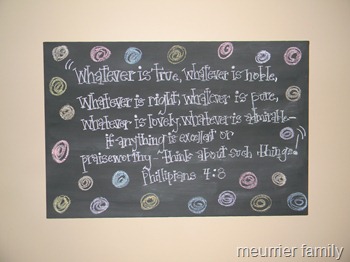 "Whatever is true, whatever is noble,
Whatever is right, whatever is pure,
whatever is lovely, whatever is admirable—
if anything is excellent or
praiseworthy—think about such things!"
Phillipians 4:8
meurrier family